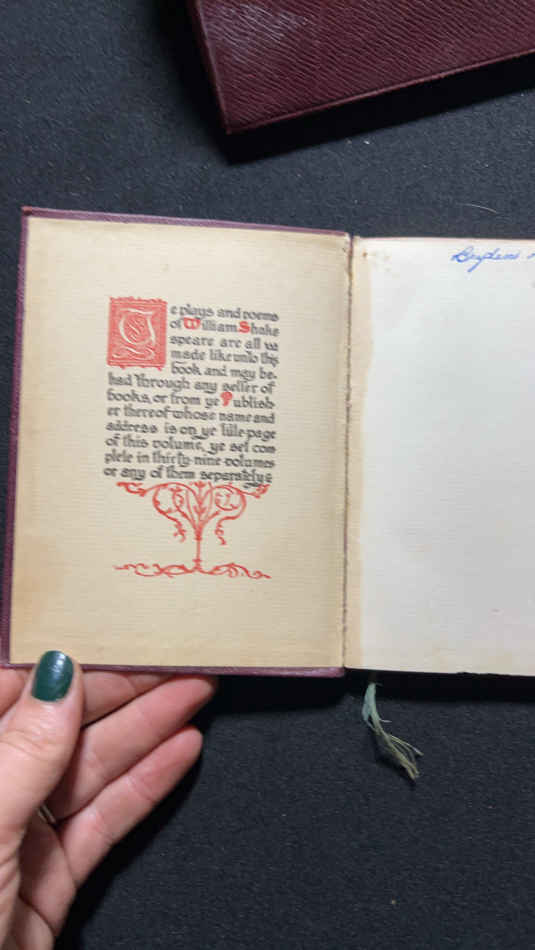 Ye plays and poems
of William Shake
speare are all
made like unto this
book and may be
had through any seller of
books, or from ye Publish
er thereof whose name and
address is on ye title-page
of this volume, ye set com
plete in thirty-nine volumes
or any of them separately